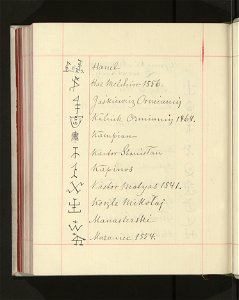 Hanel
Has Melchior 1556.
Jaskiewicz Ormianin
Kubick Ormianin 1604.
Kampian
Kantor Stanisłan
Kapinos
Kastor Matyas 1541.
Kozle Mikołaj
Manasterski
Mazaniec 1554.